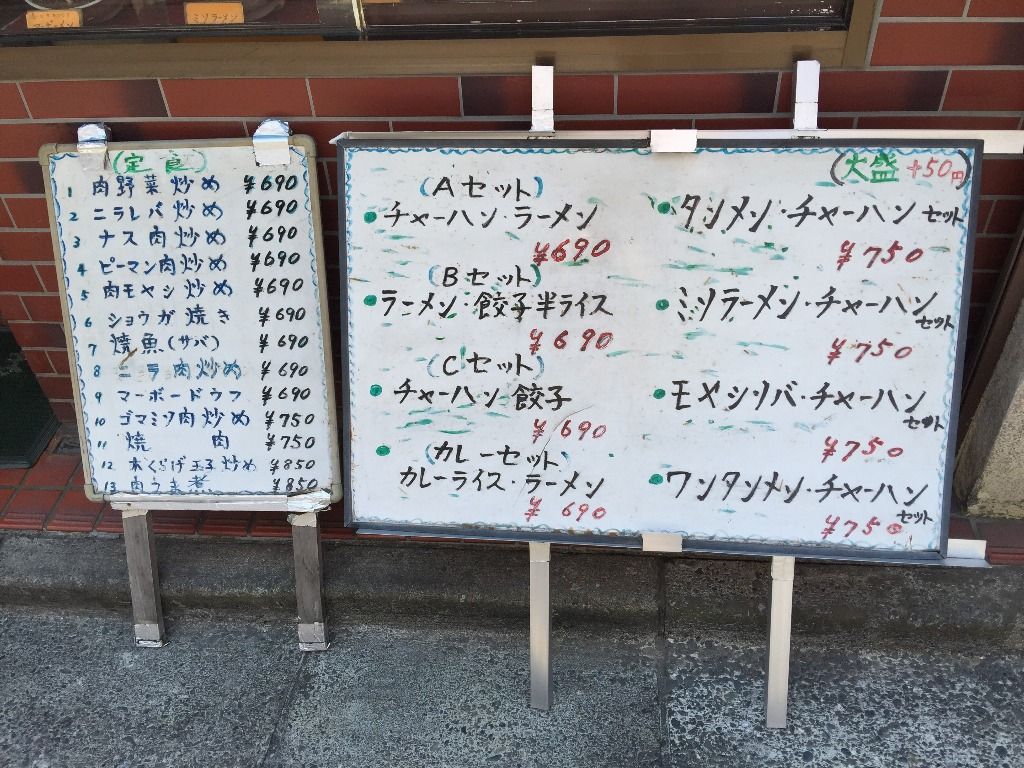 ミソラーメン
(定食)
1 肉野菜炒め ¥690
2 ニラレバ炒め ¥690
3 ナス肉炒め ¥690
4 ピーマン肉炒め ¥690
5 肉モヤシ炒め ¥690
6 ショウガ焼き ¥690
7 焼魚(サバ) ¥690
8 ニラ肉炒め ¥690
9 マーボードウフ ¥690
10 ゴマミソ肉炒め ¥750
11 焼肉 ¥750
12 木くらげ玉子炒め ¥850
13 肉うま煮 ¥850
(Aセット)
チャーハン・ラーメン
¥690
(Bセット)
ラーメン・餃子半ライス
¥690
(Cセット)
チャーハン・餃子
¥690
(カレーセット)
カレーライス・ラーメン
¥690
(大盛+50円)
タンメン・チャーハンセット
¥750
ミソラーメン・チャーハン
セット
¥750
モヤシソバ・チャーハン
セット
¥750
ワンタンメン・チャーハン
セット
¥750